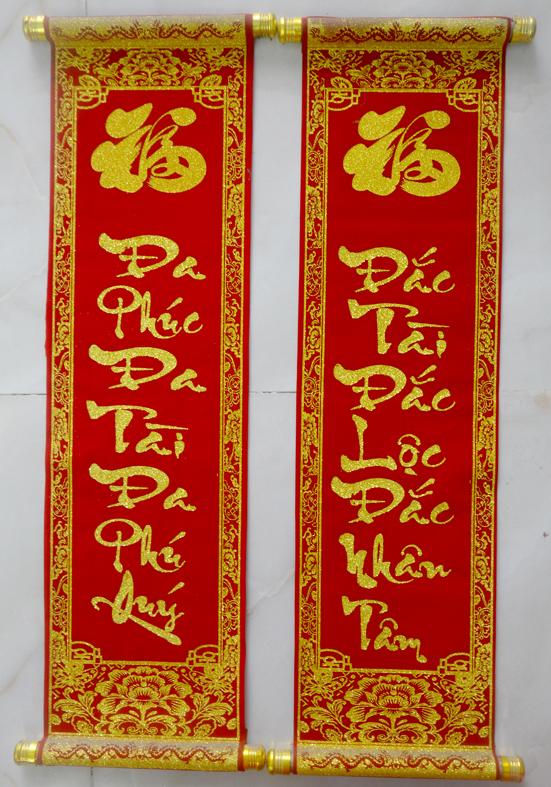 福
Đa
Phúc
Đa
Tài
Đa
Phú
Quý
福
Đắc
Tài
Đắc
Lộc
Đắc
Nhân
Tâm